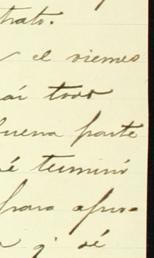 trato.
el viernes
todo
buena parte
é terminó
para apro-
q' sé